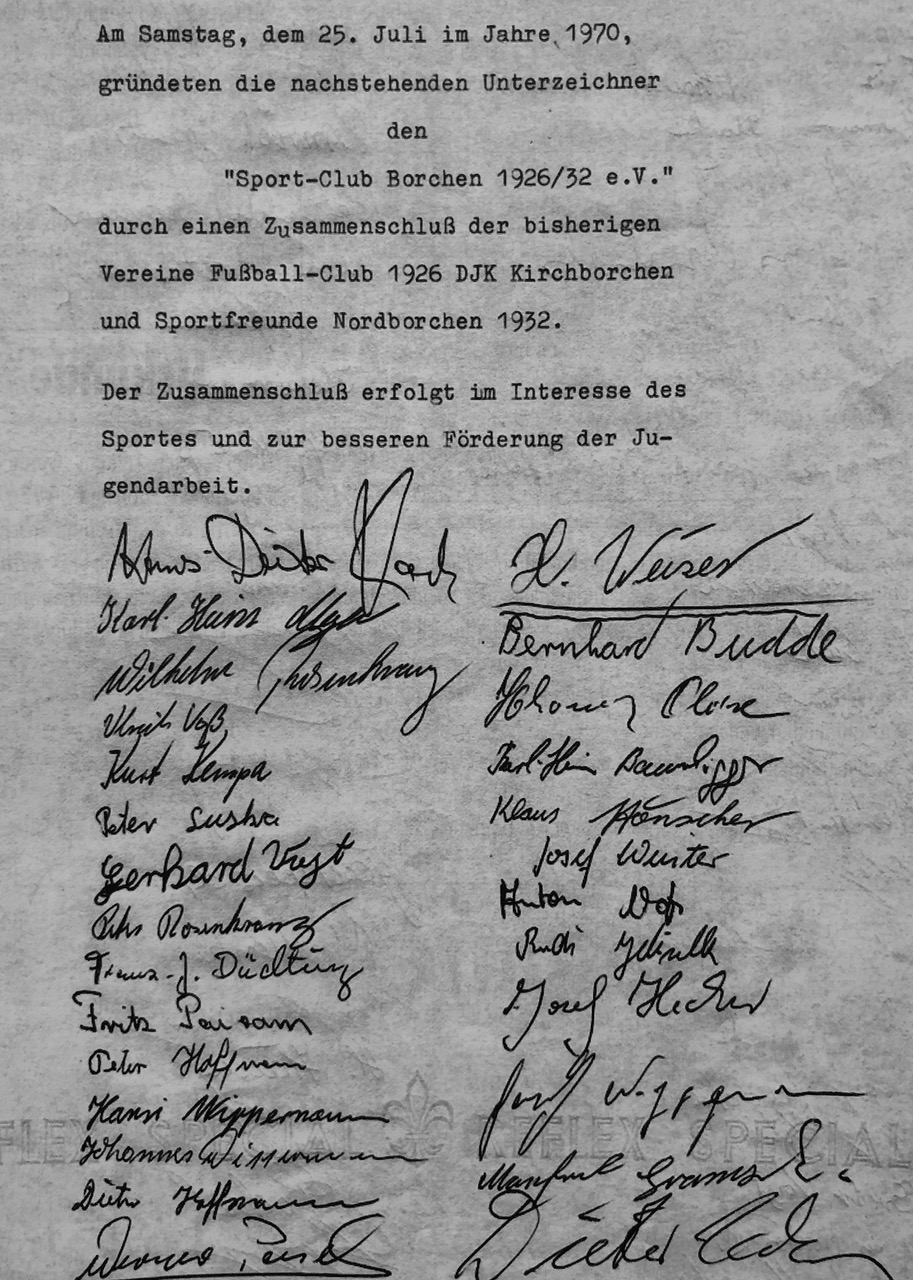 Am Samstag, dem 25. Juli im Jahre 1970,
gründeten die nachstehenden Unterzeichner
den
"Sport-Club Borchen 1926/32 e.V."
durch einen Zusammenschluß der bisherigen
Vereine Fußball-Club 1926 DJK Kirchborchen
und Sportfreunde Nordborchen 1932.
Der Zusammenschluß erfolgt im Interesse des
Sportes und zur besseren Förderung der Ju-
gendarbeit.
Hans-Dieter
Karl-Heinz
Wilhelm Rosenkranz
Ulrich Voß
Kurt Kempa
Peter Suska
Gerhard Vogt
Rosenkranz
Franz-J. Düchting
Fritz
Peter Hoffmann
Hansi Wippermann
Johannes
Dieter Hoffmann
Werner
H.
Bernhard Budde
Karl-Heinz
Klaus Hönscher
Josef
Anton
Rudi
Josef
Josef
Manfred
Dieter
REFLEX SPECIAL